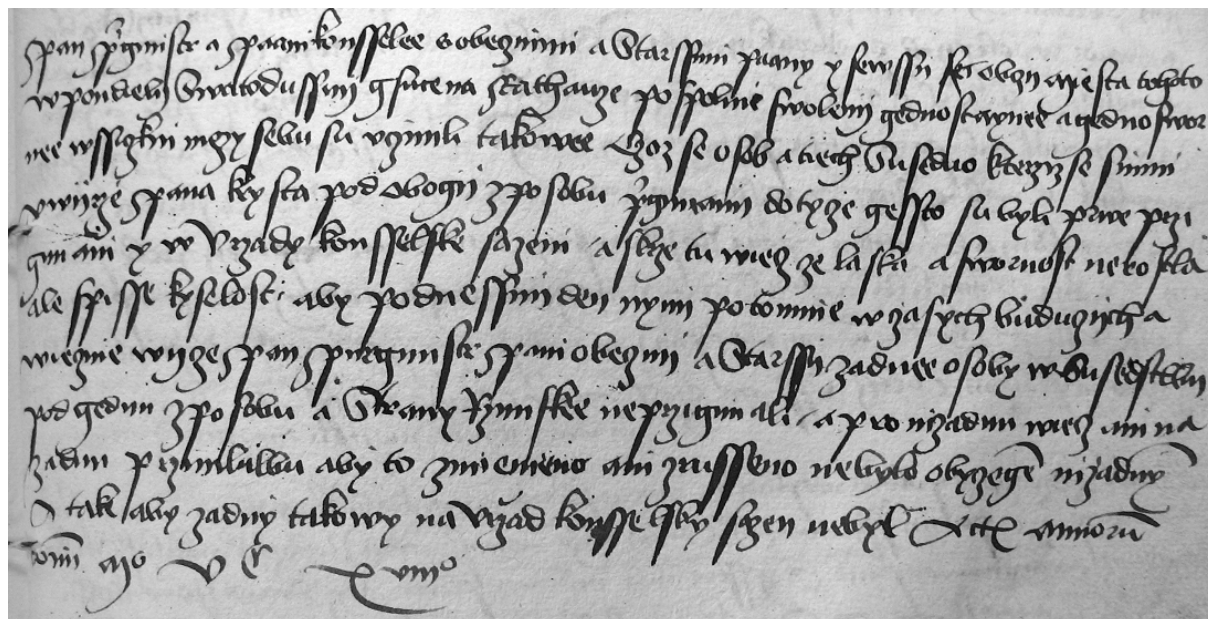 Pan purgmistr a paani konsselee s obecznimi a Starssimi puany y sewssij sfé obczij miesta tohoto
w pondieli Swatodussnij gsucena Rathauze pospolnie swolenij gednostaynee a gednoswor
nee wssiczkni mezy sebu su vczinili takowee Czoz se osob a tiech Suseduo kterziz se s nimi
v wijrze pana krysta pod obogij zposobu przigimanim dotyze gessto su byli prwe przi
gimani y w Vrzady konsselske sazeni a skrze tu wiecz ze laska a swornost nerostla
ale spisse kyselost aby podnessnim den nyni potomnie w czasych buduczijch a
wiecznie wijcze pan purgmistr pani obeczni a Starssij zadnee osoby w Susedstwu
pod gednu zposobu a Strany Rzimskee neprzigimali a pro nizadnu wiecz ani na
zadnu przimluwu aby to zmienieno ani zrusseno nebylo obyczegem nizadnym
A tak aby zadny takowy na Vrzad konsselsky sazen nebyl Actum annorum
domini Mo Vc xviiio